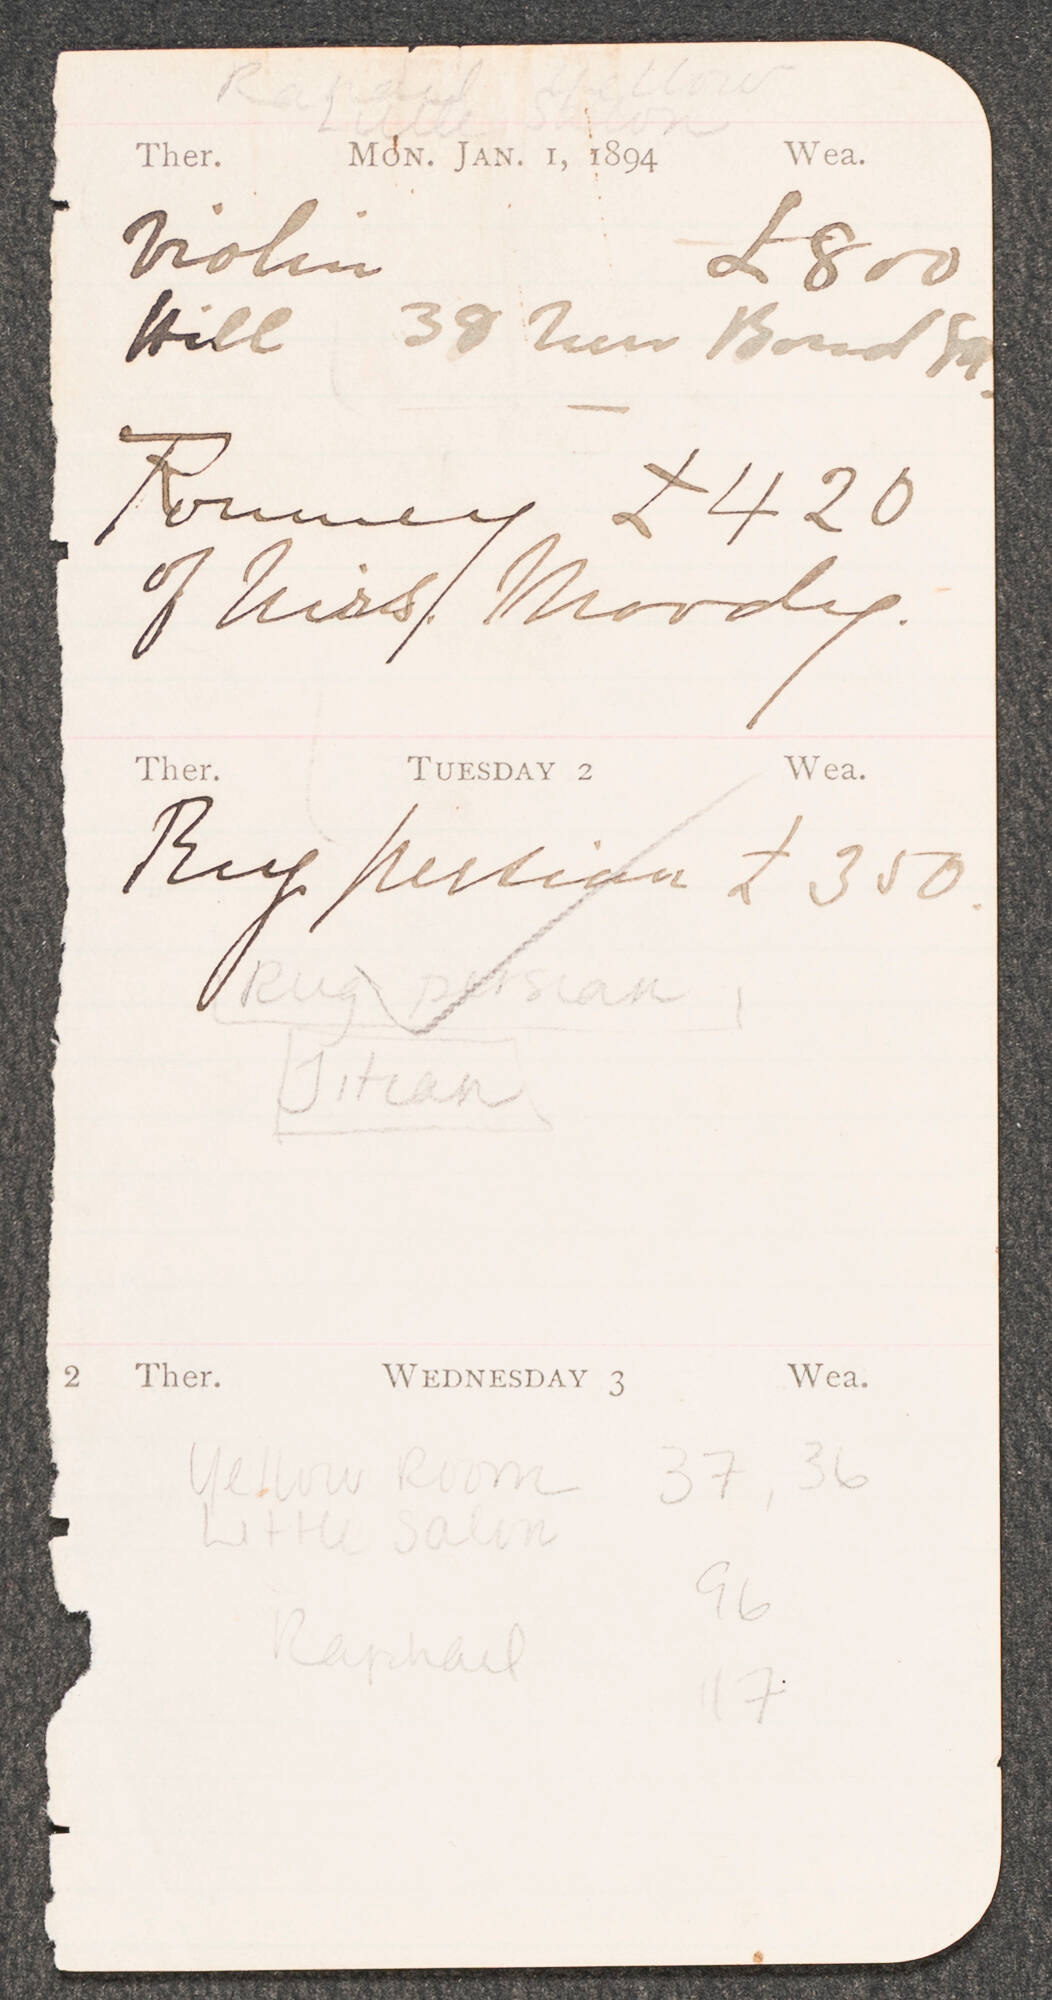 Raphael Yellow
Little Salon
Ther. Mon. Jan. 1, 1894 Wea.
Violin £800
Hill 38 New Bond St.
Romney £420
of Miss Moody.
Ther. Tuesday 2 Wea.
Rug persian £350.
Rug persian
Titian
2 Ther. Wednesday 3 Wea.
Yellow Room 37, 36
Little Salon
96
Raphael
117